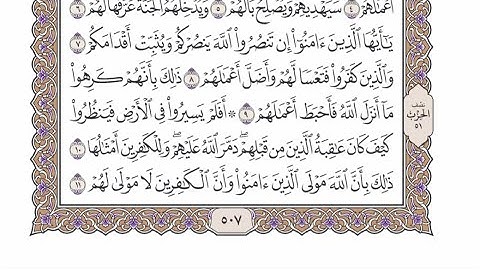 أَعْمَٰلَهُمْ ٤ سَيَهْدِيهِمْ وَيُصْلِحُ بَالَهُمْ ٥ وَيُدْخِلُهُمُ ٱلْجَنَّةَ عَرَّفَهَا لَهُمْ ٦
يَٰٓأَيُّهَا ٱلَّذِينَ ءَامَنُوٓا۟ إِن تَنصُرُوا۟ ٱللَّهَ يَنصُرْكُمْ وَيُثَبِّتْ أَقْدَامَكُمْ ٧
وَٱلَّذِينَ كَفَرُوا۟ فَتَعْسًا لَّهُمْ وَأَضَلَّ أَعْمَٰلَهُمْ ٨ ذَٰلِكَ بِأَنَّهُمْ كَرِهُوا۟
مَآ أَنزَلَ ٱللَّهُ فَأَحْبَطَ أَعْمَٰلَهُمْ ٩ ۞ أَفَلَمْ يَسِيرُوا۟ فِى ٱلْأَرْضِ فَيَنظُرُوا۟
نصف
الحزب
٥١
كَيْفَ كَانَ عَٰقِبَةُ ٱلَّذِينَ مِن قَبْلِهِمْ ۖ دَمَّرَ ٱللَّهُ عَلَيْهِمْ ۖ وَلِلْكَٰفِرِينَ أَمْثَٰلُهَا ١٠
ذَٰلِكَ بِأَنَّ ٱللَّهَ مَوْلَى ٱلَّذِينَ ءَامَنُوا۟ وَأَنَّ ٱلْكَٰفِرِينَ لَا مَوْلَىٰ لَهُمْ ١١
٥٠٧